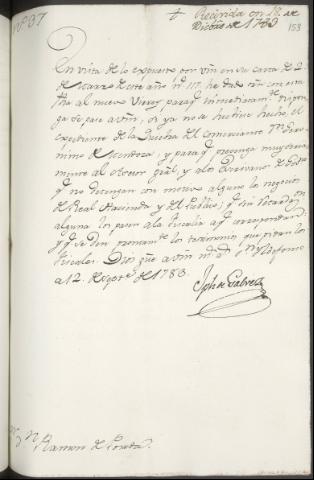 nº 37
Recivida en 1º de
Dicbre de 1783
153
En vista de lo expuesto por vm en su carta de 2
de Marzo de este año nº 117 he dado orn con esta
fha al nuevo Virrey paraq inmediatam.te dispon-
ga se pase a vm, si ya no se hubiese hecho, el
expediente de la Quiebra del comerciante dn
de Mendoza; y paraq prevenga muy seria
mente al Asesor Gral, y alos Escrivanos de
q no detengan con motivo alguno los negocios
de Real Hacienda y del Publico; q sin
alguna los pasen ala fiscalia aq correspondan;
y q se den prontamte los testimonios que pidan los
fiscales. Dios gue a vm ms as Sn Yldefonso
a 12 de Sepre de 1783.
Jph de Galvez
Sr Dn Ramon de Posada.